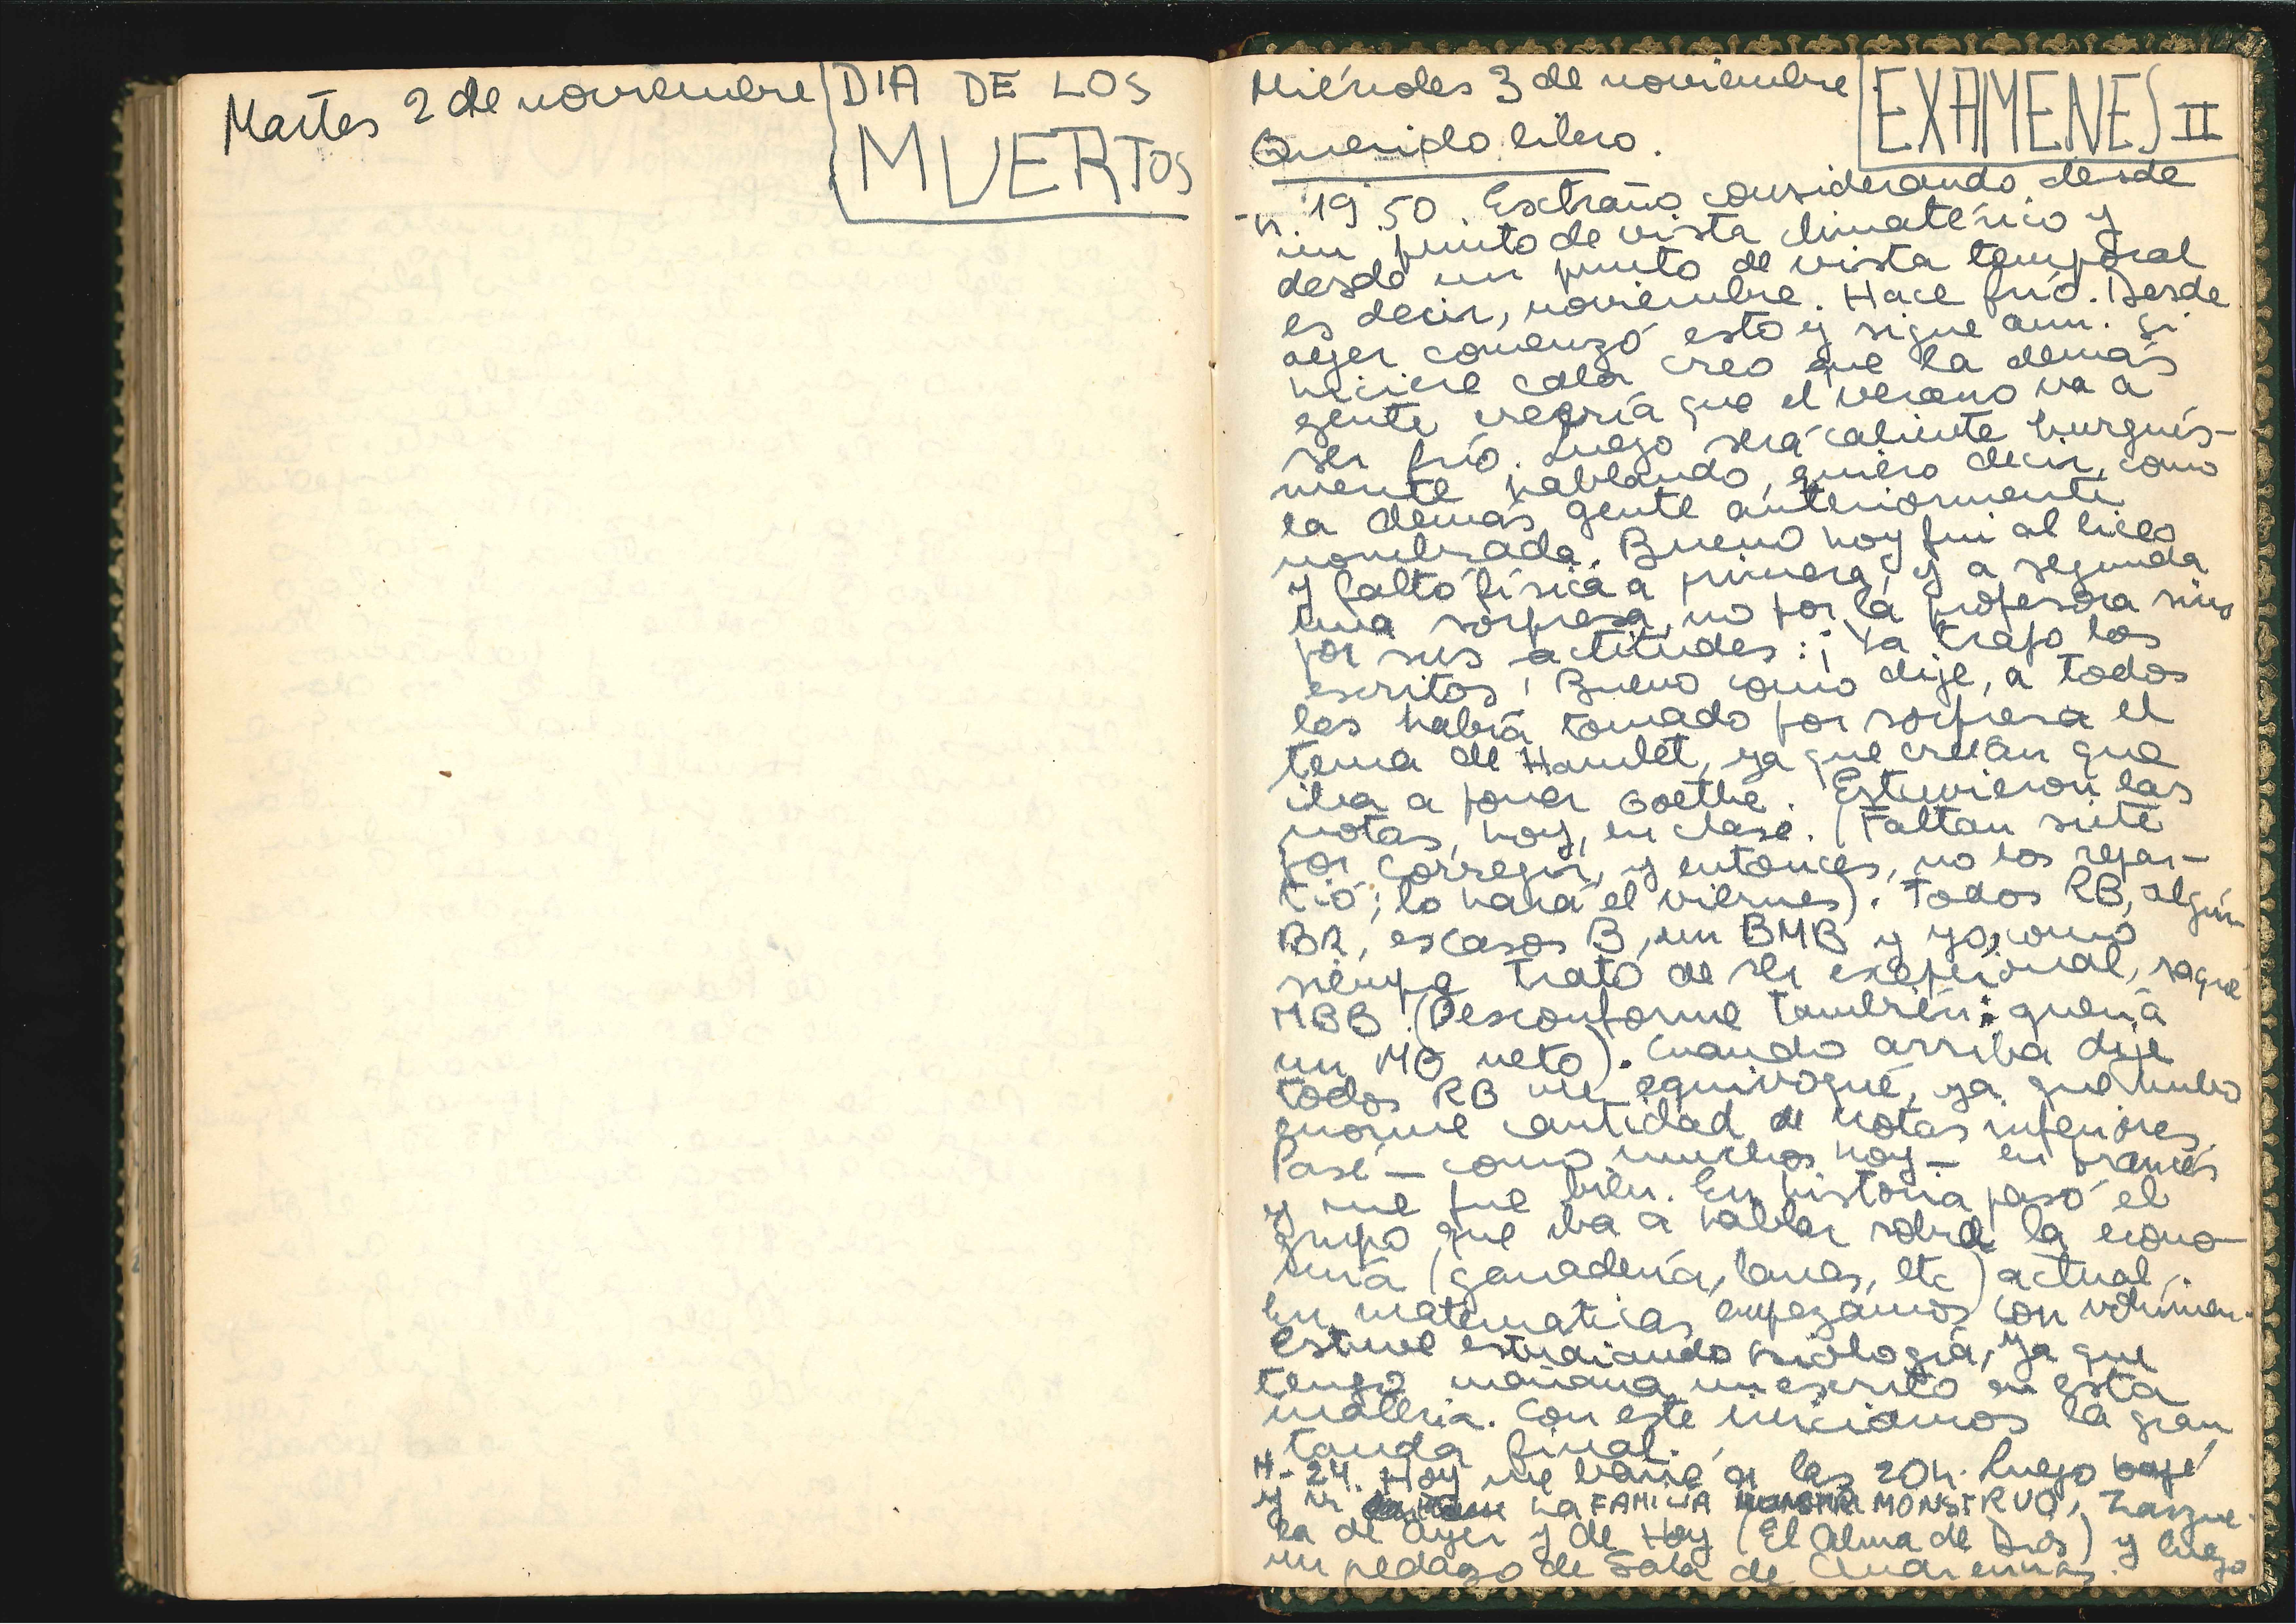 Martes 2 de noviembre DIA DE LOS
MUERTOS
Miércoles 3 de noviembre EXAMENES II
Querido libro.
-H 19 50. Extraño considerando desde
un punto de vista climatérico y
desde un punto de vista temporal
es decir, noviembre. Hace frío. Desde
ayer comenzó esto y sigue aun. Si
hiciese calor creo que la demás
gente creería que el verano va a
ser frío. Luego será caliente burgués-
mente hablando, quiero decir, como
la demás gente anteriormente
nombrada. Bueno hoy fui al liceo
y faltó física a primera, y a segunda
una sorpresa, no por la profesora sino
por sus actitudes: ¡Ya trajo los
escritos! Bueno como dije, a todos
les había tomado por sorpresa el
tema de Hamlet, ya que creían que
iba a poner Goethe. Estuvieron las
notas, hoy, en clase. (Faltan siete
por corregir, y entonces, no los repar-
tió; lo hará el viernes). Todos RB, algún
BR, escasos B, un BMB y yo, como
siempre trato de ser exepcional, saqué
MBB. (Desconforme también: quería
un MB neto). Cuando arriba dije
todos RB me equivoqué, ya que hubo
enorme cantidad de notas inferiores.
Pasé - como muchos hoy - en francés
y me fue bien. En historia pasó el
grupo que iba a hablar sobre la econo-
mía (ganadería, lanas, etc) actual.
En matematicas empezamos con volúmen.
Estuve estudiando psicología, ya que
tengo mañana un escrito en esta
materia. Con este iniciamos la gran
tanda final.
H- 24. Hoy me bañé a las 20h. Luego bajé
y vi La FAMILIA MONSTRUO, Zarzue-
la de Ayer y de Hoy (El Alma de Dios) y luego
un pedazo de Sala de